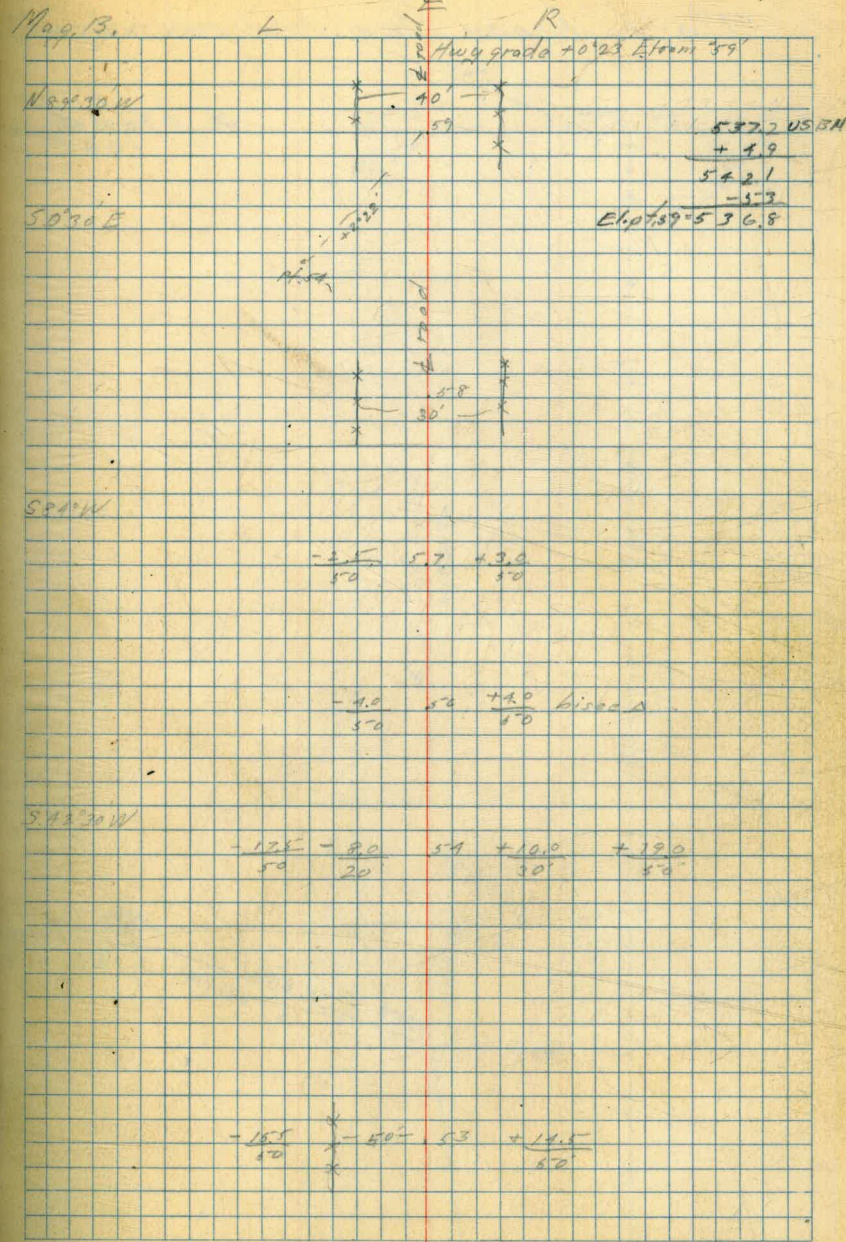 Mag. B. L R
℄ road
Hwy grade +0°23' E from "59"
N 89°30' W
40'
59
537.2 US BM
+ 4.9
542.1
-5.3
El. pt. 59 = 536.8
S 0°30' E
+2°22'
Pt. 54
℄ road
58
30'
S 84° W
-2.5/50 57 +3.0/50
-4.0/50 56 +4.0/50 bisec Δ
S 42°30' W
-17.5/50 -8.0/20 54 +10.0/30' +19.0/50
-15.5/50 -50'- 53 +14.5/50